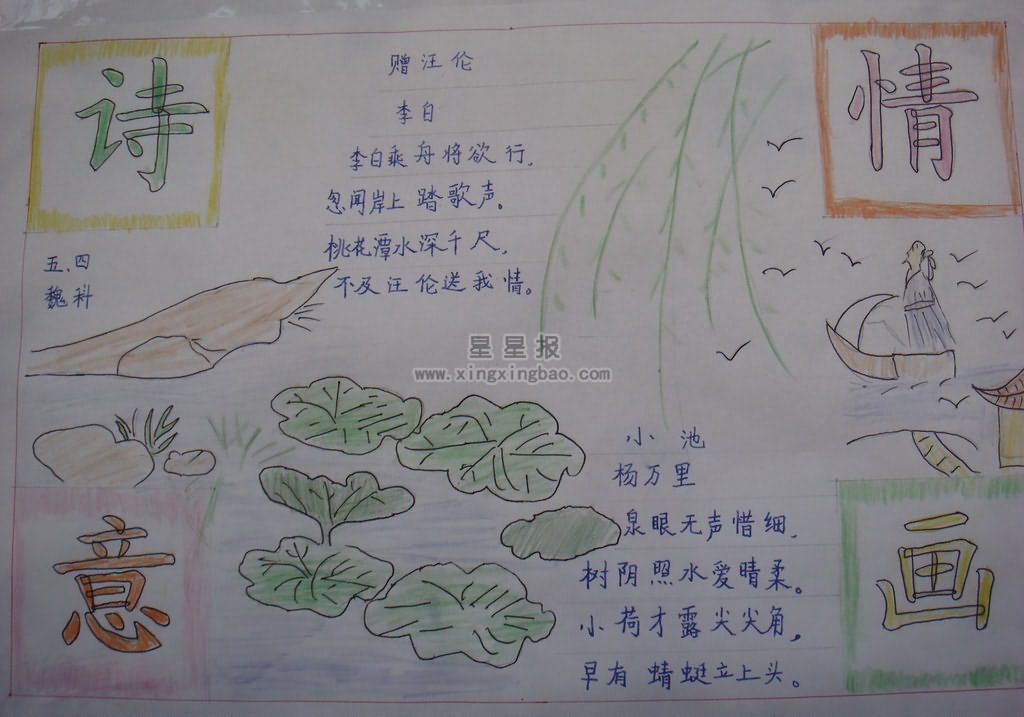 诗
情
赠汪伦
李白
李白乘舟将欲行,
忽闻岸上踏歌声。
桃花潭水深千尺,
不及汪伦送我情。
五.四
魏科
星星报
www.xingxingbao.com
小池
杨万里
泉眼无声惜细,
树阴照水爱晴柔。
小荷才露尖尖角,
早有蜻蜓立上头。
意
画